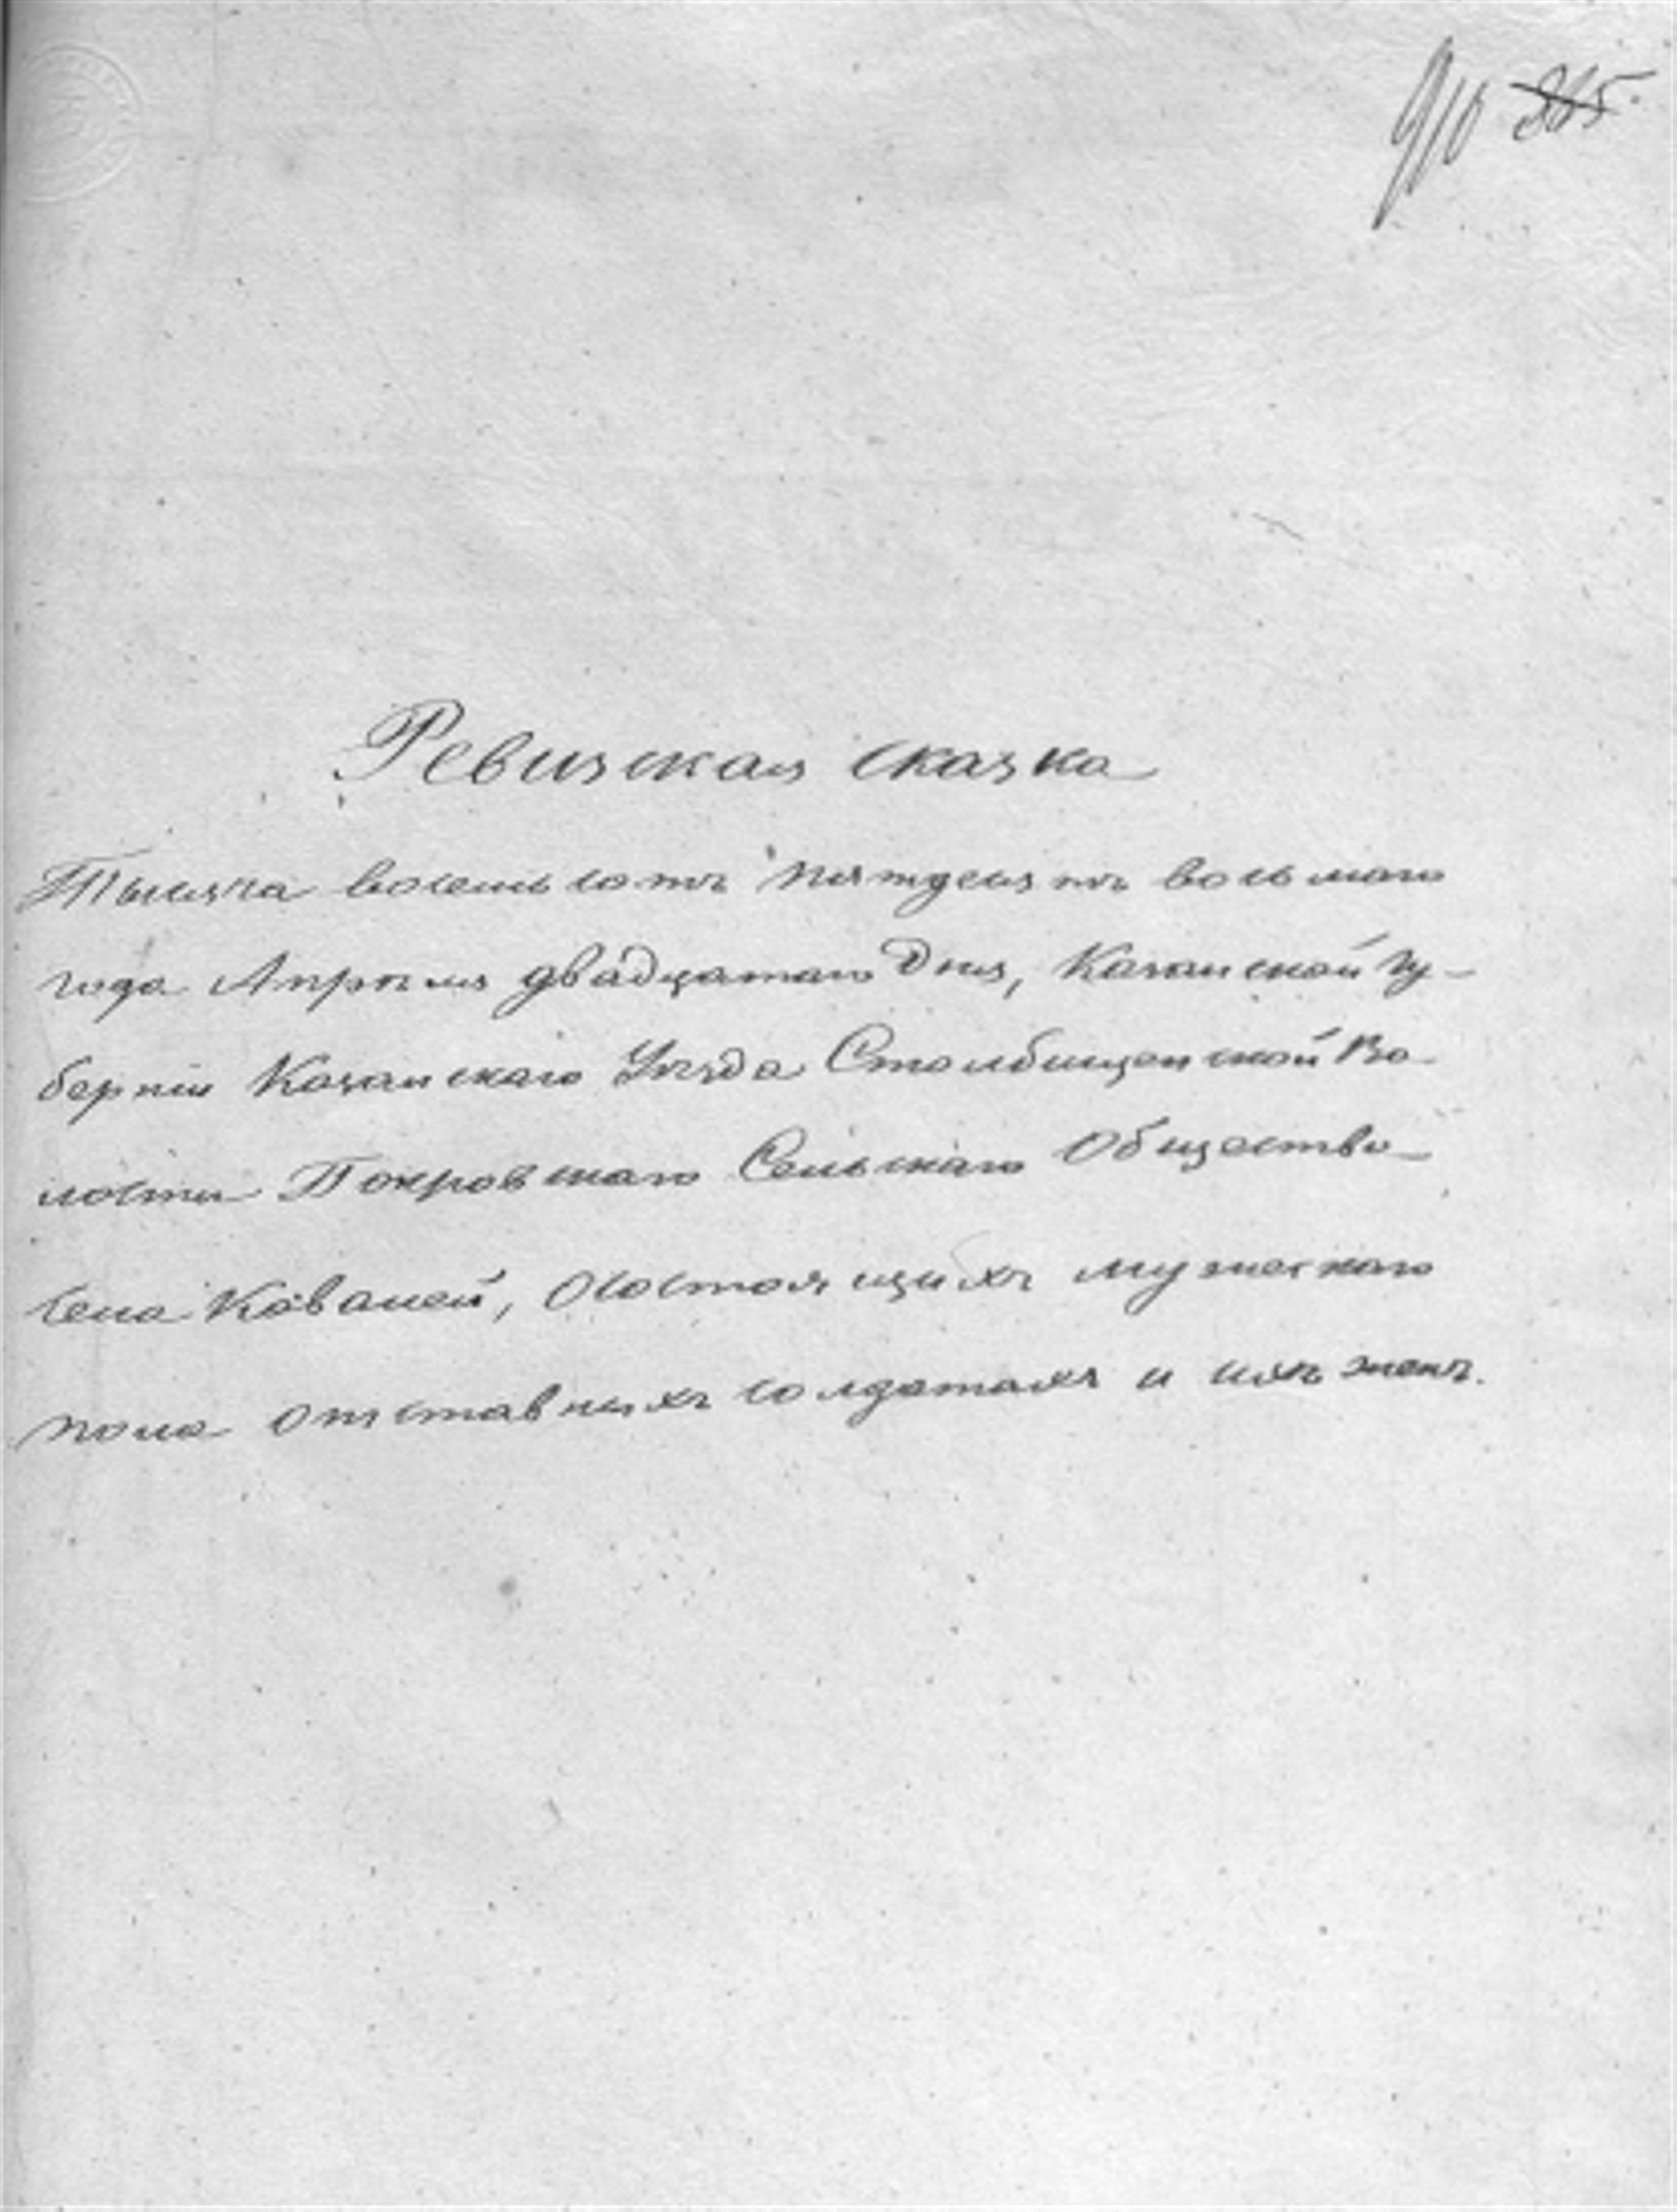 910 865.
Ревизская сказка
Тысяча восемьсотъ пятдесятъ восьмаго
года Апрѣля двадцатаго дня, Казанской Гу-
берніи Казанскаго Уѣзда Столбищенской Во-
лости Покровскаго Сельскаго Общества
села Ковалей, о состоящихъ мужескаго
пола отставныхъ солдатахъ и ихъ женъ.